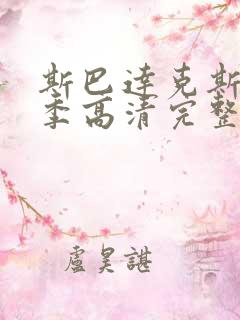 斯巴达克斯
季高清完整
盧昊諶